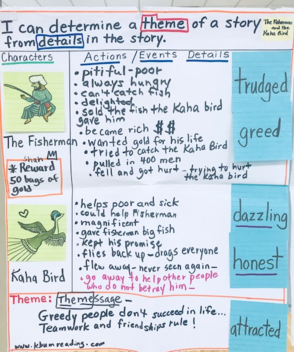 I can determine a theme of a story
from details in the story.
The Fisherman
and the
Kaha Bird
Characters
Actions / Events Details
• pitiful-poor
• always hungry
• can't catch fish
• delighted
• sold the fish the Kaha bird
gave him
• became rich $$
• wanted gold for his life
• tried to catch the Kaha Bird
• pulled in 400 men
• fell and got hurt - trying to hurt
the Kaha bird
The Fisherman
* Reward
50 bags of
gold
trudged
greed
• helps poor and sick
• could help Fisherman
• magnificent
• gave fisherman big fish
• kept his promise
• flies back up - drags everyone
• flew away - never seen again -
• go away to help other people
who do not betray him -
Kaha Bird
dazzling
honest
Theme: Themessage -
Greedy people don't succeed in life...
Teamwork and friendships rule!
attracted